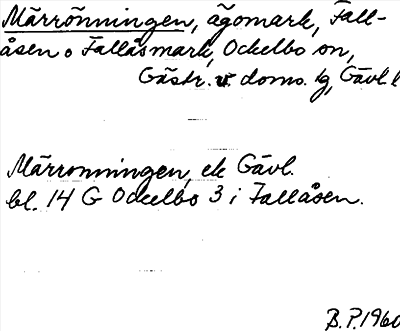 Märrönningen, ägomark, Fall-
åsen o Fallåsmark, Ockelbo sn,
Gästr. v. doms. lg, Gävl. l
Märronningen, ek Gävl.
bl. 14 G Ockelbo 3 i Fallåsen.
B.P. 1960